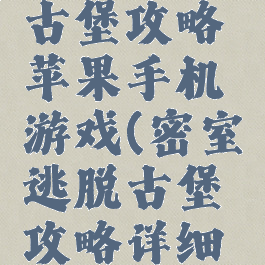 古堡攻略
苹果手机
游戏(密室
逃脱古堡
攻略详细